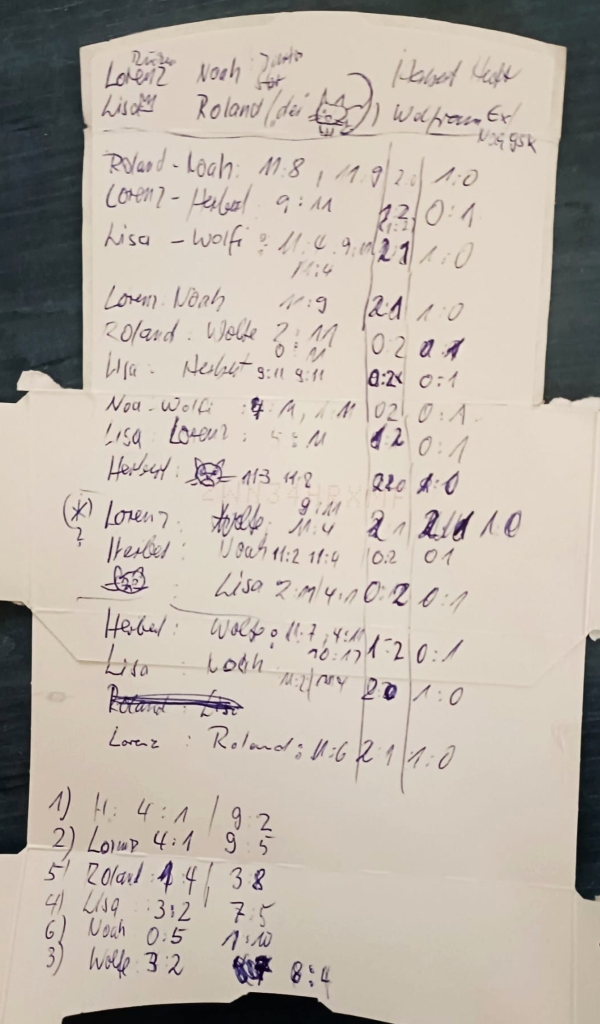 Lorenz Noah Herbert
Lisa Roland (dei ) Wolfram Exl
Roland - Noah: 11:8 , 11:9 2:0 1:0
Lorenz - Herbert 9:11 1:2 0:1
Lisa - Wolfi : 11:4 9:11 2:1 1:0
11:4
Lorenz Noah 11:9 2:1 1:0
Roland : Wolfe 2:11 0:2 0:1
0:11
Lisa - Herbert 9:11 9:11 0:2 0:1
Noa - Wolfi : 02 0:1
Lisa : Lorenz : 4:11 1:2 0:1
Herbert : 11:3 11:2 2:0 1:0
9:11
(*) Lorenz : Wolfe : 11:4 2 1 1 0
?
Herbert : Noah 11:2 11:4 0:2 01
: Lisa 2:11/4:11 0:2 0:1
Herbert : Wolfe : 11:7 , 4:11 1:2 0:1
10:12
Lisa : Noah 2:0 1:0
11:2/
Roland : Lisa
Lorenz : Roland : 11:6 2:1 1:0
1) H: 4:1 / 9:2
2) Lorenz 4:1 9:5
5) Roland : 1:4 / 3:8
4) Lisa : 3:2 7:5
6) Noah 0:5 1:10
3) Wolfe : 3:2 8:4